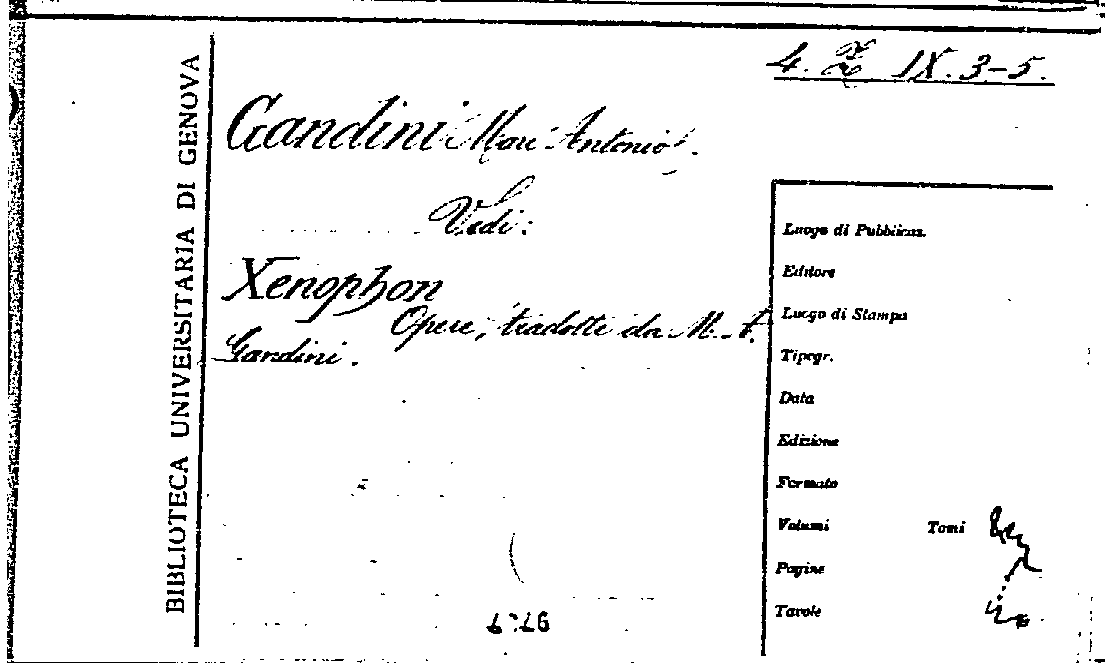 BIBLIOTECA UNIVERSITARIA DI GENOVA
4. Z IX. 3-5.
Gandini Marc'Antonio.
Vedi:
Xenophon
Opere, tradotte da M. A.
Gandini.
Luogo di Pubblicaz.
Editore
Luogo di Stampa
Tipogr.
Data
Edizione
Formato
Volumi Tomi
Pagine
Tavole